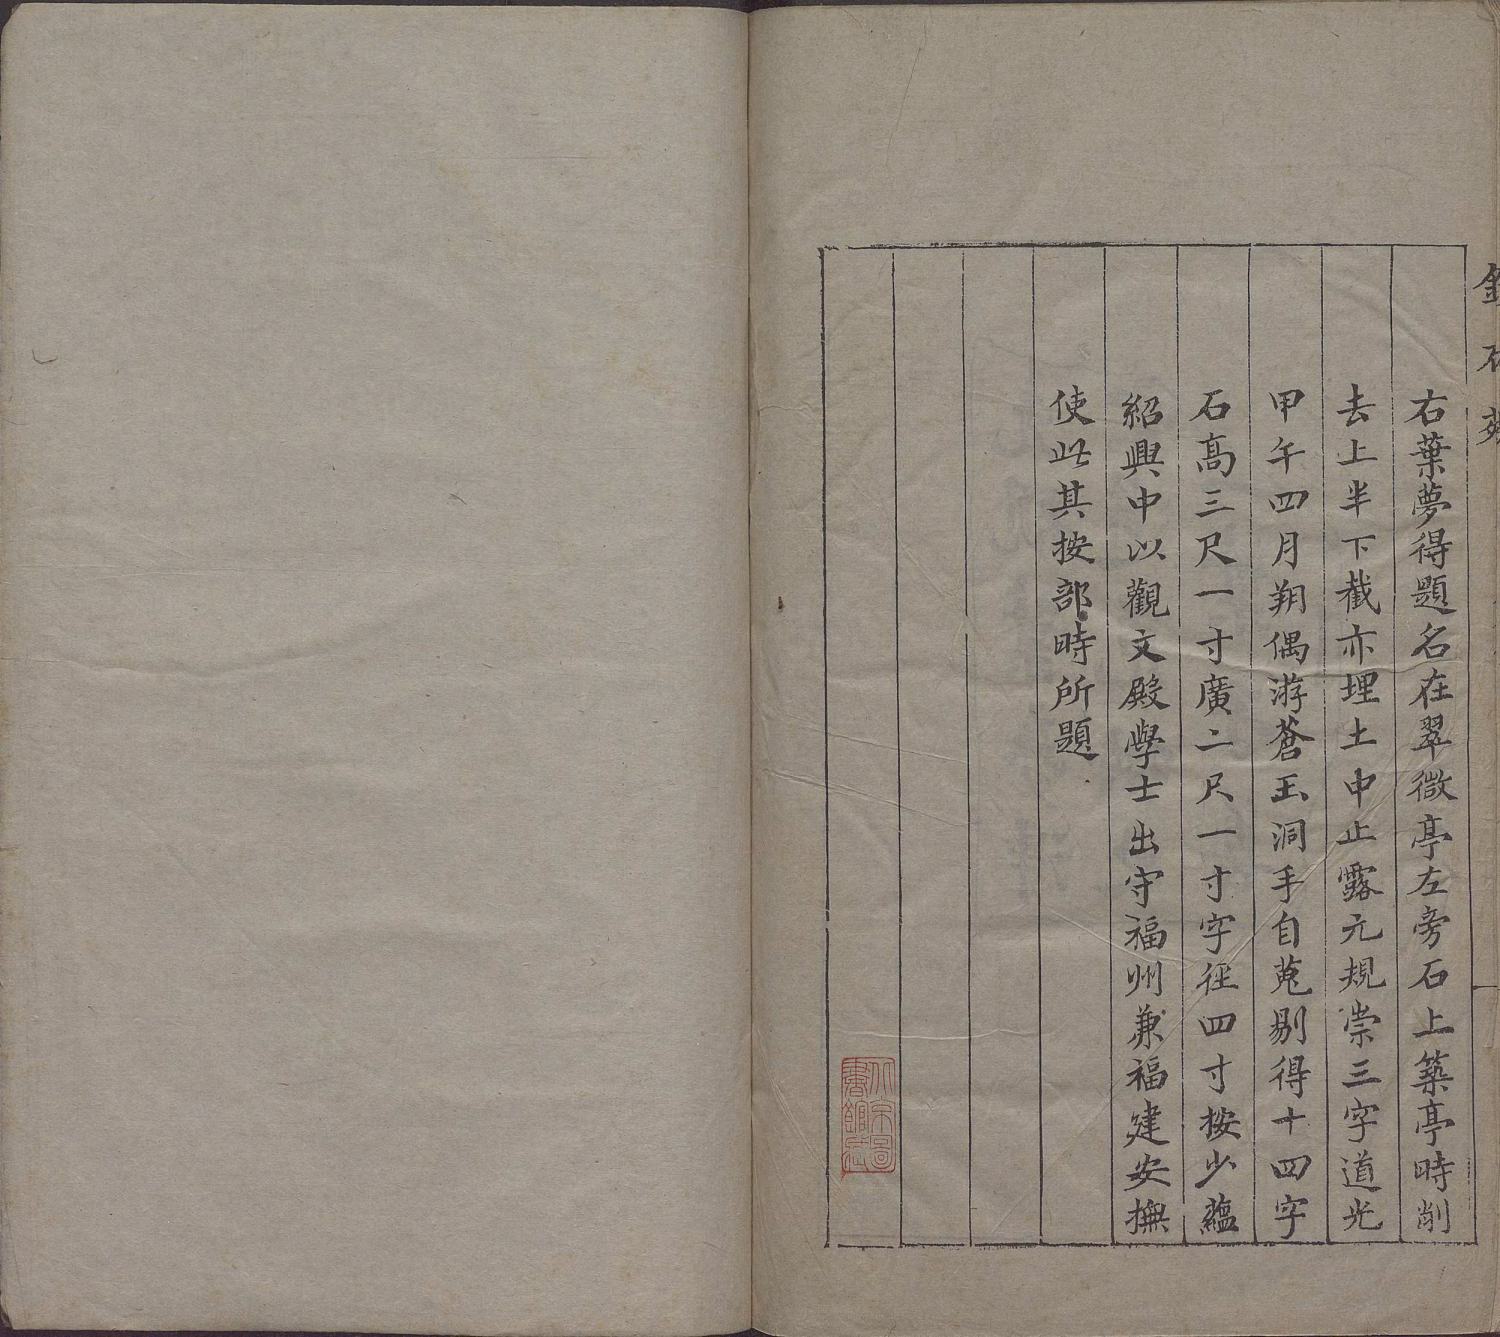 金石苑
右葉夢得題名在翠微亭左旁石上築亭時削
去上半下截亦埋土中止露元規崇三字道光
甲午四月朔偶游蒼玉洞手自蒐剔得十四字
石高三尺一寸廣二尺一寸字徑四寸按少蘊
紹興中以觀文殿學士出守福州兼福建安撫
使此其按部時所題